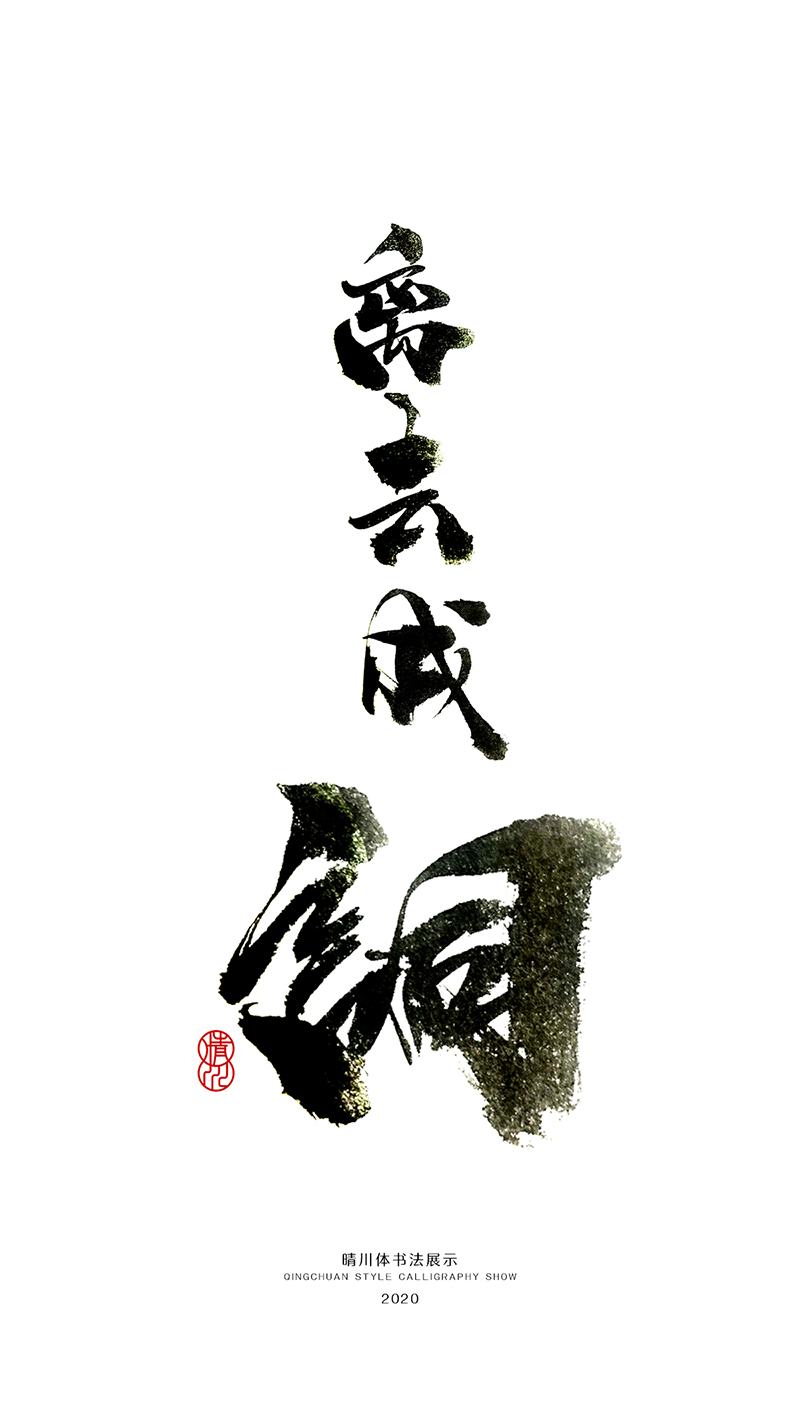 离去成铜
晴川
晴川体书法展示
QINGCHUAN STYLE CALLIGRAPHY SHOW
2020